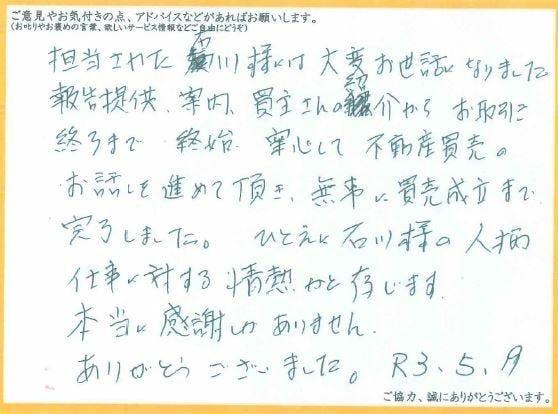 ご意見やお気付きの点、アドバイスなどがあればお願いします。
(お叱りやお褒めの言葉、欲しいサービス情報などご自由にどうぞ)
担当された石川様には大変お世話になりました
報告提供、案内、買主さんの紹介から お取引
終了まで 終始 安心して 不動産買売の
お話しを進めて頂き、無事に買売成立まで
完了しました。 ひとえに石川様の人柄
仕事に対する情熱かと存じます
本当に感謝しかありません.
ありがとうございました。 R3.5.
ご協力、誠にありがとうございます。